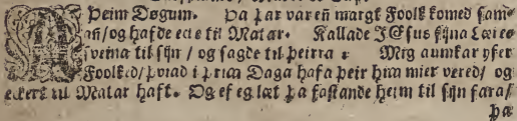 A Þeim Døgum. Þa þar var en̄ margt Foolk komed sam-
an/og hafde ecke til Matar. Kallade JEsus sijna Læres
sveina til sijn/og sagde til þeirra: Mig aumkar yfer
Foolked/þviad i þria Daga hafa þeir hia mier vered/og
eckert til Matar haft. Og ef eg læt þa fastande heim til sijn fara/
þa